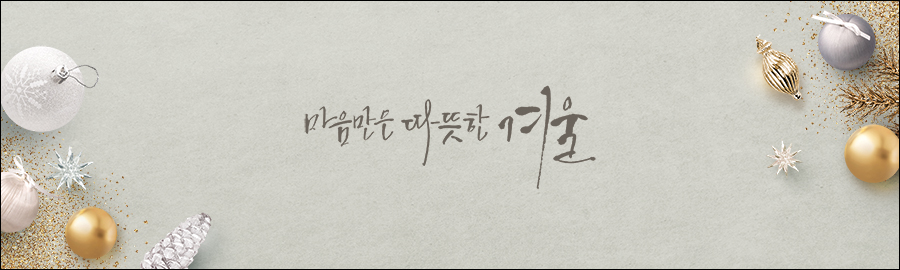 마음만은 따뜻한 겨울